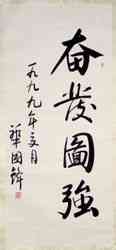 奋发圖強
一九九九年六月
華國鋒